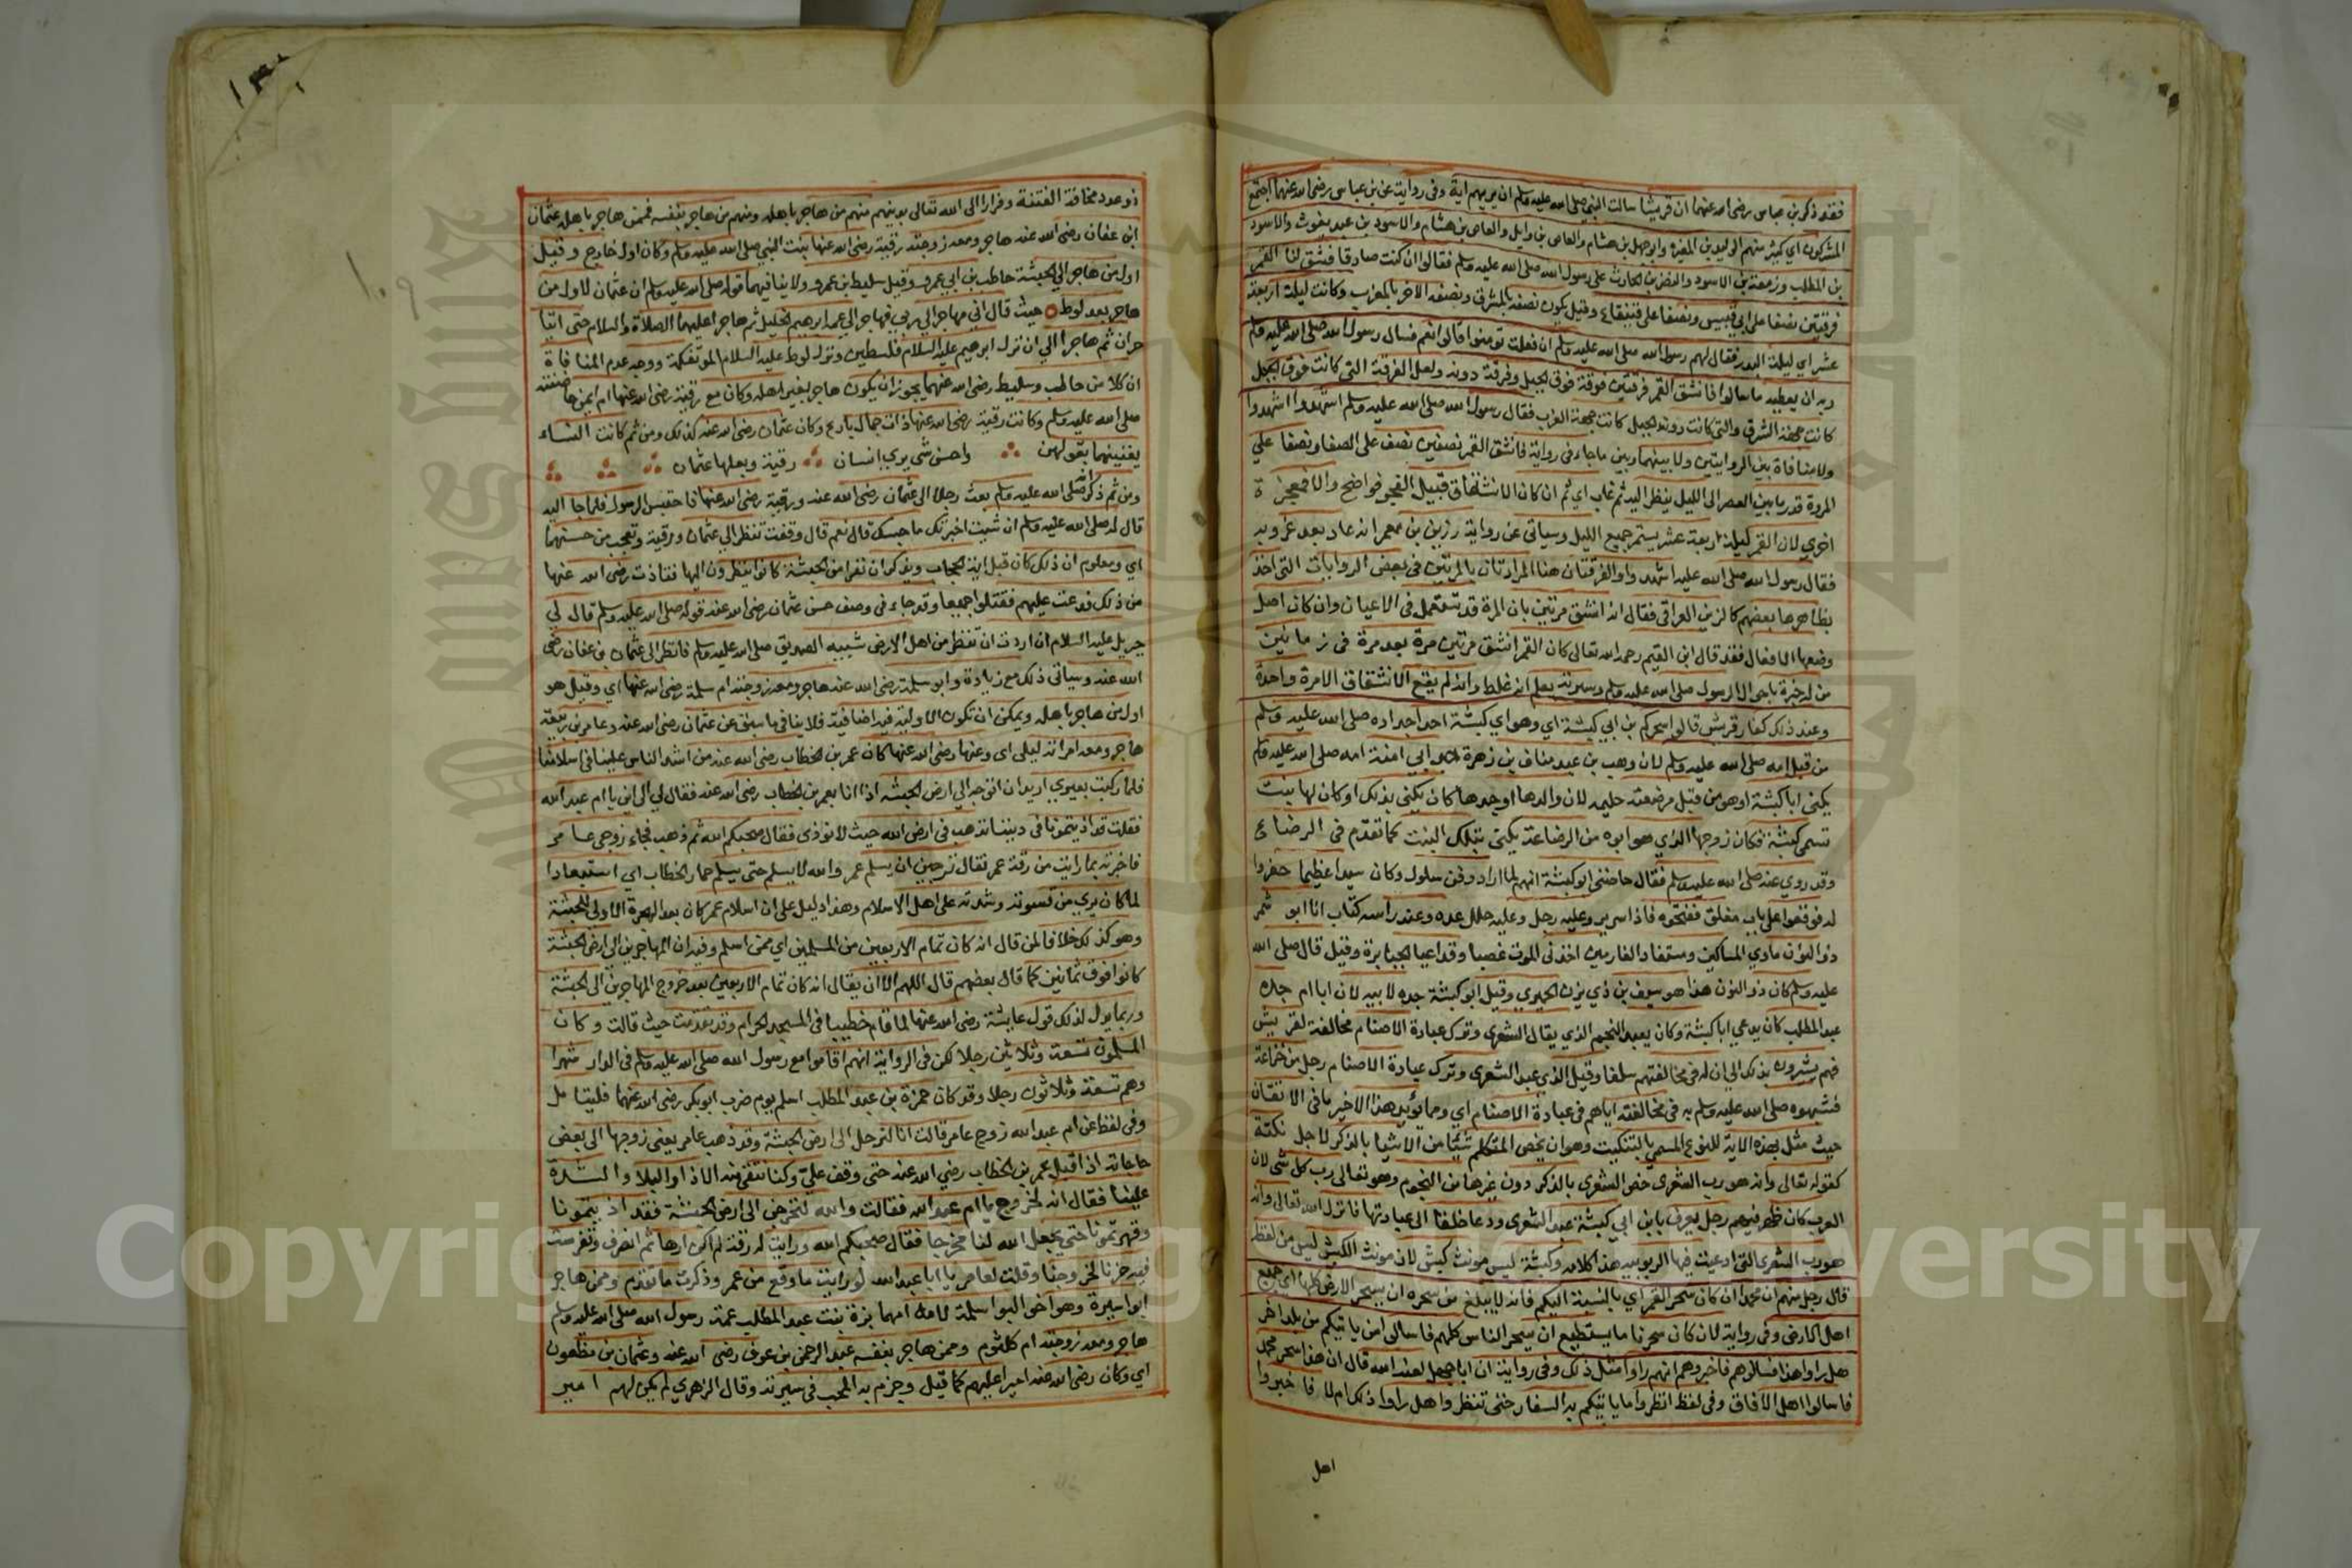 فقد ذكر بن عباس رضى الله عنهما ان قريشا سالت النبي صلى الله عليه وسلم ان يريهم اية وفى رواية عن بن عباس رضى الله عنهما اجتمع
المشركون اي كثير منهم الوليد بن المغيرة وابو جهل بن هشام والعاص بن وايل والعاص بن هشام والاسود بن عبد يغوث والاسود
بن المطلب وزمعة بن الاسود والنضر بن الحارث على رسول الله صلى الله عليه وسلم فقالوا ان كنت صادقا فشق لنا القمر
فرقتين نصفا على ابي قبيس ونصفا على قيقعان وقيل يكون نصفه بالمشرق ونصفه الاخر بالمغرب وكانت ليلة اربعة
عشر اي ليلة البدر فقال لهم رسول الله صلى الله عليه وسلم ان فعلت تومنوا قالوا نعم فسال رسول الله صلى الله عليه وسلم
ربه ان يعطيه ما سالوا فانشق القمر فرقتين فرقة فوق الجبل وفرقة دونه ولعل الفرقة التي كانت فوق الجبل
كانت جهة الشرق والتي كانت دونه الجبل كانت جهة الغرب فقال رسول الله صلى الله عليه وسلم اشهدوا اشهدوا
ولا منافاة بين الروايتين ولا بينهما وبين ما جاء فى رواية فانشق القمر نصفين نصف على الصفا ونصفا علي
المروة قدر ما بين العصر الى الليل ينظر اليه ثم غاب اي ثم ان كان الانشقاق قبيل الفجر فواضح والا فمعجزة
اخري لان القمر ليلة اربعة عشر يستمر جميع الليل وسياتى عن رواية رزين بن معمر انه عاد بعد غروبه
فقال رسول الله صلى الله عليه اشهدوا والفرقتان هنا المرادتان بالمرتين فى بعض الروايات التى اخذ
بظاهرها بعضهم كالزين العراقى فقال انه انشق مرتين بان المرة قد تستعمل فى الاعيان وان كان اصل
وضعها الافعال فقد قال ابن القيم رحمه الله تعالى كان القمر انشق مرتين مرة بعد مرة فى زمانين
من له خبرة باحوال الرسول صلى الله عليه وسلم وسيرته يعلم انه غلط وانه لم يقع الانشقاق الا مرة واحدة
وعند ذلك كفار قريش قالوا سحركم بن ابي كبشة اي وهو اي كبشة احد اجداده صلى الله عليه وسلم
من قبل امه صلى الله عليه وسلم لان وهب بن عبد مناف بن زهرة ابي امنة امه صلى الله عليه وسلم
يكنى ابا كبشة او هو من قبل مرضعته حليمه لان والدها او جدها كان يكنى بذلك او كان لها بنت
تسمى كبشة فكان زوجها الذي هو ابوه من الرضاعة يكنى بتلك البنت كما تقدم فى الرضاع
وقد روي عنه صلى الله عليه وسلم فقال حاضنى ابو كبشة انهم لما ارادوا دفن سلول وكان سيدا عظيما حفروا
له فوقفوا على باب مغلق ففتحوه فاذا سرير وعليه رجل وعليه حلل عدة وعند راسه كتاب انا ابو شمر
ذو النون ماوي المساكين ومستفاد الغارمين اخذنى الموت غصبا وقد اعيا الجبابرة وقيل قال صلى الله
عليه وسلم كان ذو النون هذا هو سيف بن ذي يزن الحميري وقيل ابو كبشة جده لابيه لان ابا ام جده
عبد المطلب كان يدعي ابا كبشة وكان يعبد النجم الذي يقال الشعري وترك عبادة الاصنام مخالفة لقريش
فهم يشيرون بذلك الي ان له في مخالفتهم سلفا وقيل الذي عبد الشعرى وترك عبادة الاصنام رجل من خزاعة
فشبهوه صلى الله عليه وسلم به فى مخالفته اياهم فى عبادة الاصنام اي ومما يؤيد هذا الاخير ما فى الاتقان
حيث مثل بهذه الاية للنوع المسمي بالتنكيت وهو ان يخص المتكلم شيئا من الاشيا بالذكر لاجل نكتة
كقوله تعالى وانه هو رب الشعرى خص الشعري بالذكر دون غيرها من النجوم وهو تعالى رب كل شى لان
العرب كان ظهر فيهم رجل يعرف بابن ابي كبشة عبد الشعرى ودعا خلقا الى عبادتها فانزل الله تعالى وانه
هو رب الشعرى التى ادعيت فيها الربوبيه هذا كلامه وكبشة ليس مونث كبش لان مونث الكبش ليس من لفظه
قال رجل منهم ان محمدا ان كان سحر القمر اي بالنسبة اليكم فانه لا يبلغ من سحره ان يسحر الارض كلها اي جميع
اهل الارض وفى رواية لان كان سحرنا ما يستطيع ان يسحر الناس كلهم فاسالوا من ياتيكم من بلد اخر
هل راوا هذا فسالوهم فاخبروهم انهم راوا مثل ذلك وفى رواية ان ابا جهل لعنه الله قال ان هذا سحر محمد
فاسالوا اهل الافاق وفى لفظ انظروا ما ياتيكم به السفار حتى تنظروا هل راوا ذلك ام لا فاخبروا
اهل
ذو عدد مخافة الفتنة وفرارا الى الله تعالى بدينهم منهم من هاجر باهله ومنهم من هاجر بنفسه فممن هاجر باهله عثمان
ابن عفان رضى الله عنه هاجر ومعه زوجته رقية رضى الله عنها بنت النبي صلى الله عليه وسلم وكان اول خارج وقيل
اول من هاجر الي الحبشة حاطب بن ابي عمرو وقيل سليط بن عمرو ولا ينافيهما قوله صلى الله عليه وسلم ان عثمان لاول من
هاجر بعد لوط حيث قال اني مهاجر الي ربي فهاجر الي عمه ابرهيم الخليل ثم هاجرا عليهما الصلاة والسلام حتى اتيا
حران ثم هاجرا الي ان نزل ابرهيم عليه السلام فلسطين ونزل لوط عليه السلام الموتفكة ووجه عدم المنافاة
ان كلا من حاطب وسليط رضى الله عنهما يجوز ان يكون هاجر بغير اهله وكان مع رقية رضى الله عنها ام ايمن حاضنته
صلى الله عليه وسلم وكانت رقية رضى الله عنها ذات جمال بارع وكان عثمان رضى الله عنه كذلك ومن ثم كانت النساء
يغنينهما بقولهن واحسن شى يري انسان رقية وبعلها عثمان
ومن ثم ذكر انه صلى الله عليه وسلم بعث رجلا الى عثمان رضى الله عنه ورقية رضى الله عنها فاحتبس الرسول فلما جا اليه
قال له صلى الله عليه وسلم ان شيت اخبرتك ما حبسك قال نعم قال وقفت تنظر الي عثمان ورقية وتعجب من حسنهما
اي ومعلوم ان ذلك كان قبل اية الحجاب ويذكر ان نفرا من الحبشة كانوا ينظرون اليها فتاذت رضى الله عنها
من ذلك فدعت عليهم فقتلوا جميعا وقد جاء فى وصف حسن عثمان رضى الله عنه قوله صلى الله عليه وسلم قال لي
جبريل عليه السلام ان اردت ان تنظر من اهل الارض شبيه الصديق صلى الله عليه وسلم فانظر الى عثمان بن عفان رضى
الله عنه وسياتى ذلك مع زيادة وابو سلمة رضى الله عنه هاجر ومعه زوجته ام سلمة رضى الله عنها اي وقيل هو
اول من هاجر باهله ويمكن ان تكون الاولية فيه اضافية فلا ينافى ما سبق عن عثمان رضى الله عنه وعامر بن ربيعة
هاجر ومعه امراته ليلى اى وعنها رضى الله عنها كان عمر بن الخطاب رضى الله عنه من اشد الناس علينا فى اسلامنا
فلما ركبت بعيري اريد ان اتوجه الي ارض الحبشة اذا انا بعمر بن الخطاب رضى الله عنه فقال لي الى اين يا ام عبد الله
فقلت قد اذيتمونا فى ديننا نذهب فى ارض الله حيث لا نوذى فقال صحبكم الله ثم ذهب فجاء زوجى عامر
فاخبرته بما رايت من رقة عمر فقال ترجين ان يسلم عمر والله لا يسلم حتى يسلم حمار الخطاب اي استبعادا
لما كان يري من قسوته وشدته على اهل الاسلام وهذا دليل على ان اسلام عمر كان بعد الهجرة الاولى للحبشة
وهو كذلك خلافا لمن قال انه كان تمام الاربعين من المسلمين اي ممن اسلم وفيه ان المهاجرين الى ارض الحبشة
كانوا فوق ثمانين كما قال بعضهم قال اللهم الا ان يقال انه كان تمام الاربعين بعد خروج المهاجرين الى الحبشة
وربما يدل لذلك قول عايشة رضى الله عنها لما قام خطيبا فى المسجد الحرام وقد تقدمت حيث قالت وكان
المسلمون تسعة وثلاثين رجلا لكن فى الرواية انهم اقاموا مع رسول الله صلى الله عليه وسلم فى الدار شهرا
وهم تسعة وثلاثون رجلا وقد كان حمزة بن عبد المطلب اسلم يوم ضرب ابو بكر رضى الله عنهما فليتامل
وفى لفظ عن ام عبد الله زوج عامر قالت انا لنرحل الى ارض الحبشة وقد ذهب عامر يعنى زوجها الى بعض
حاجاته اذ اقبل عمر بن الخطاب رضي الله عنه حتى وقف علي وكنا نلقى منه الاذا والبلاء والشدة
علينا فقال انه لخروج يا ام عبد الله فقالت والله لنخرجن الى ارض الحبشة فقد اذيتمونا
وقهرتمونا حتى يجعل الله لنا مخرجا فقال صحبكم الله ورايت له رقة لم اكن اراها ثم انصرف وتفرست
فيه حزنا لخروجنا وقلت لعامر يا ابا عبد الله لو رايت ما وقع من عمر وذكرت ما تقدم وممن هاجر
ابو سبرة وهو اخو ابو سلمة لامه امهما برة بنت عبد المطلب عمة رسول الله صلى الله عليه وسلم
هاجر ومعه زوجته ام كلثوم وممن هاجر بنفسه عبد الرحمن بن عوف رضى الله عنه وعثمان بن مظعون
اي وكان رضى الله عنه اميرا عليهم كما قيل وجزم به المحب فى سيرته وقال الزهري لم يكن لهم امير
Copyright © King Saud University